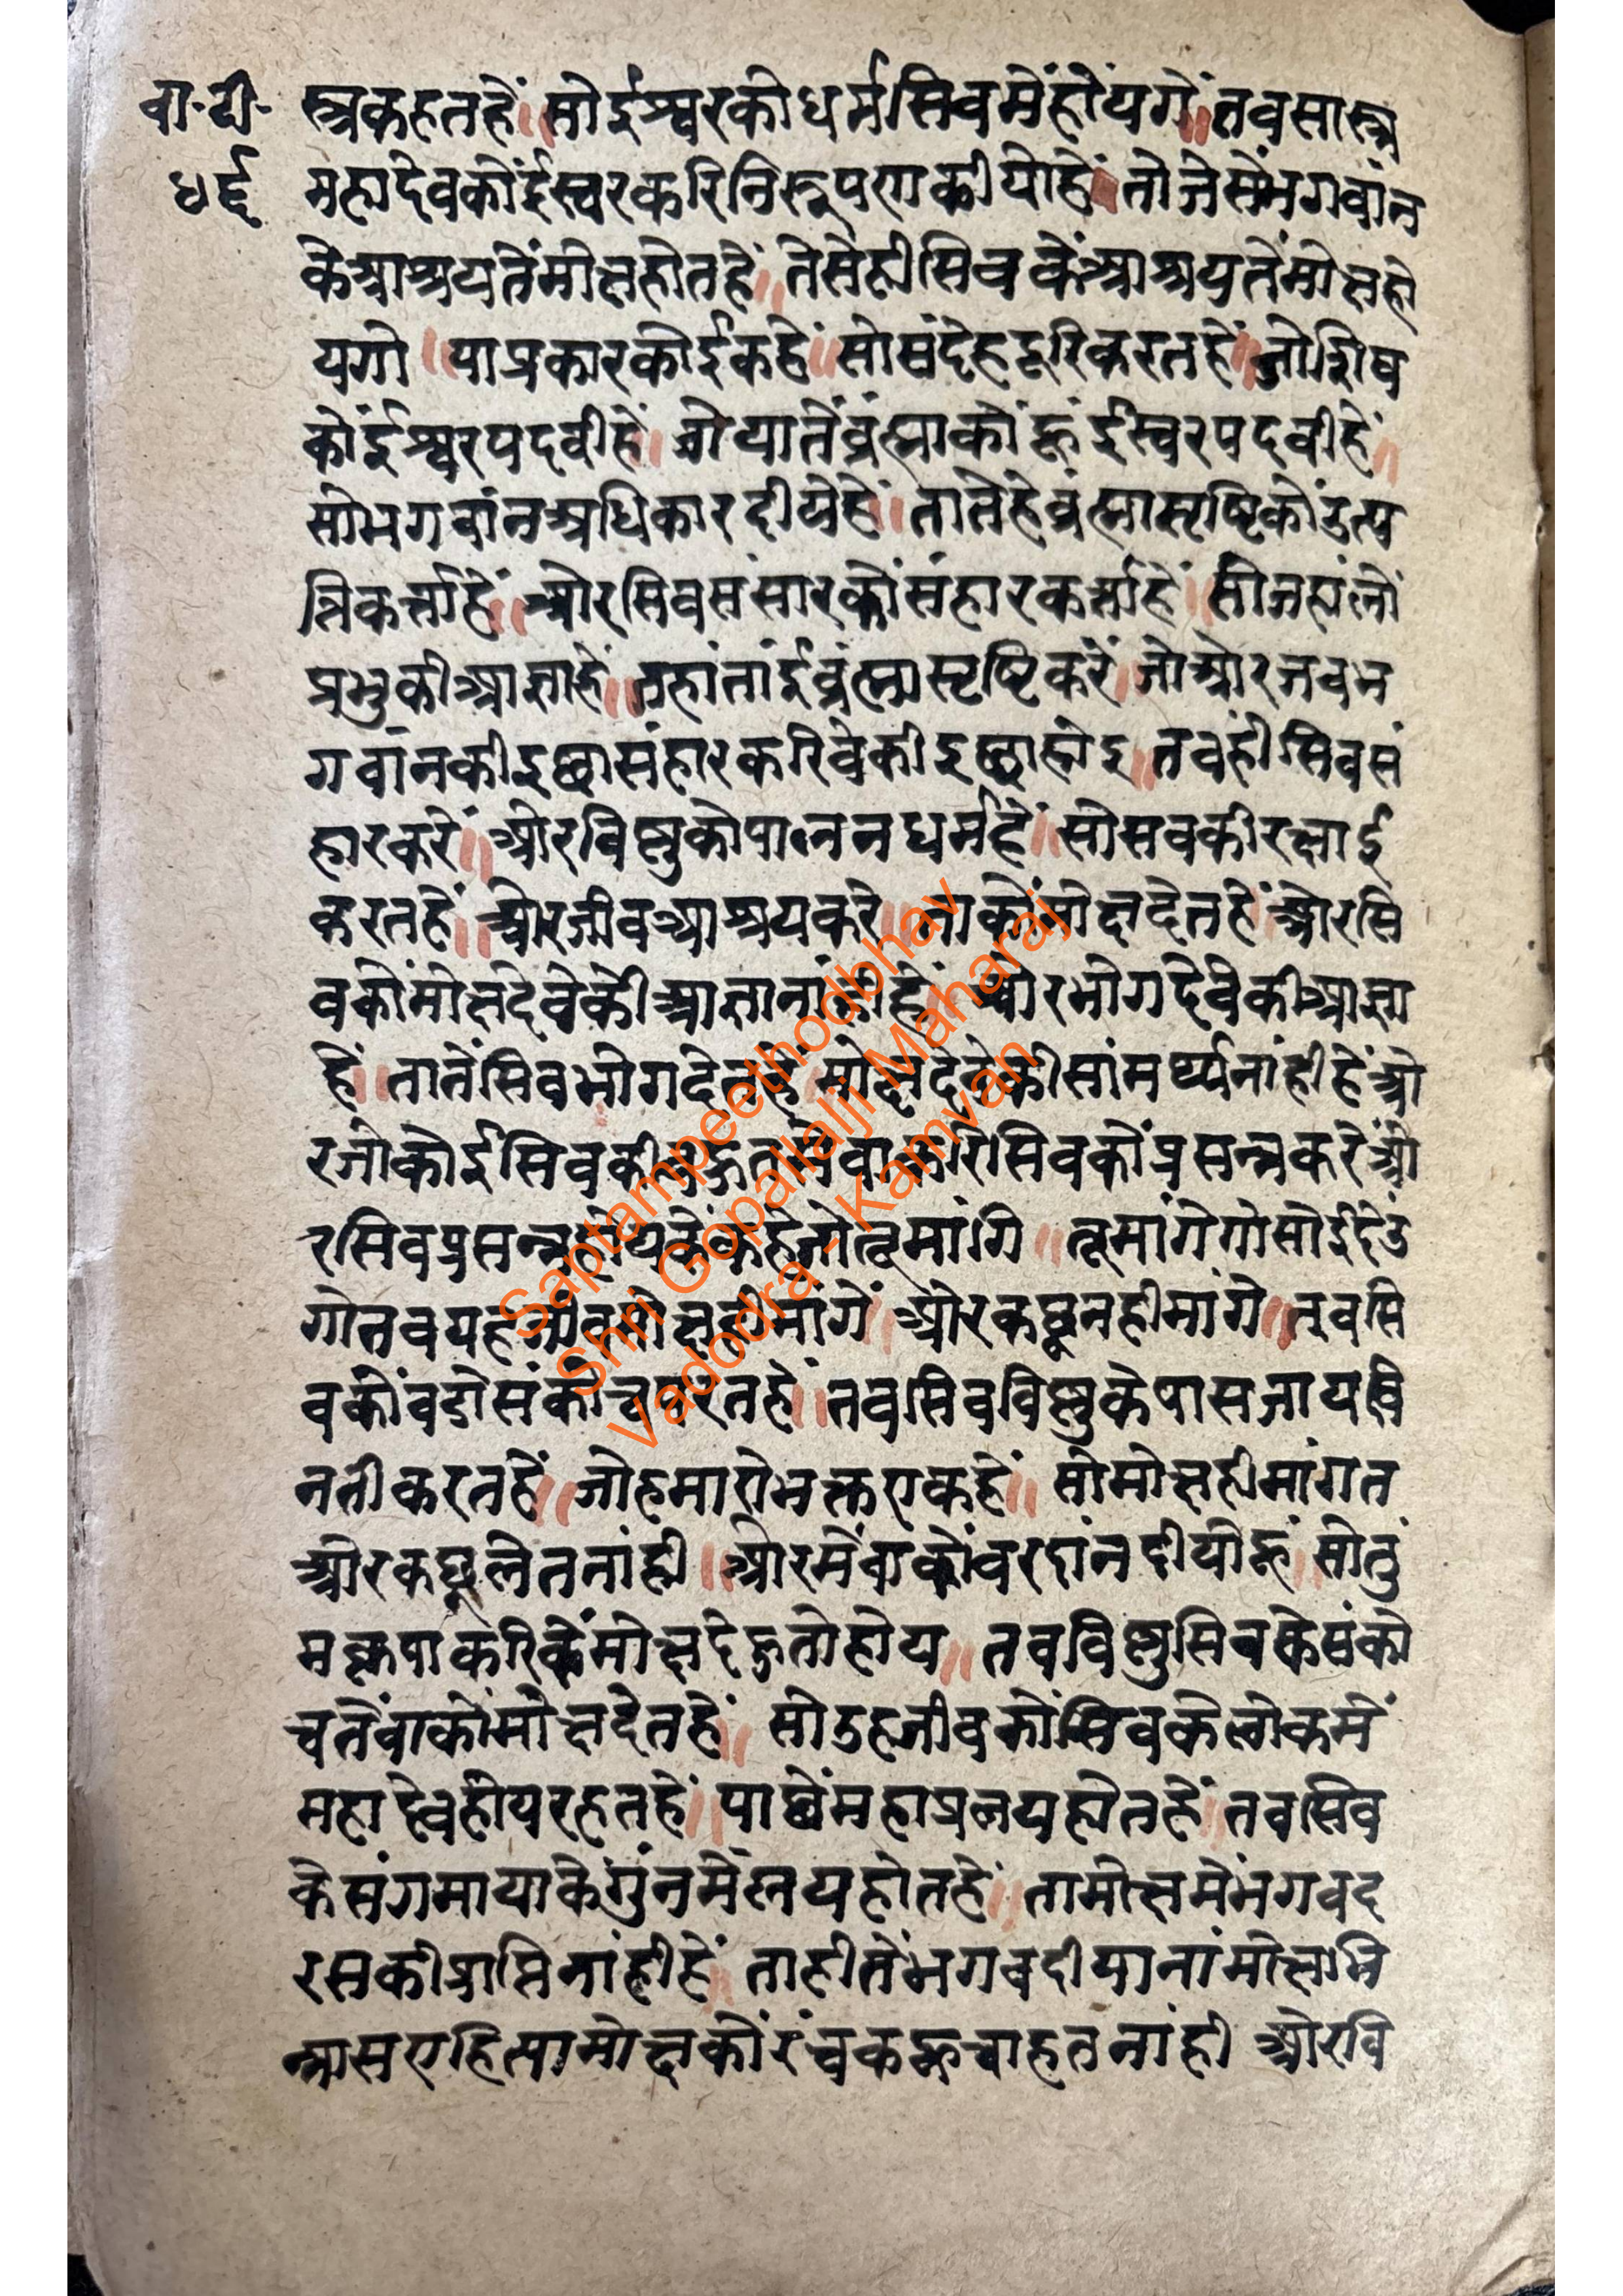 बा॰टी॰
४६
स्त्रकहतहें॥सोईश्वरकोधर्मसिवमेंहोंयगें॥तबसास्त्र
महादेवकोंईस्वरकरिनिरूपणकीयोहें॥तोजेसेंभगवांन
केआश्रयतेंमोक्षहोतहें॥तेसेहीसिवकेंआश्रयतेंमोक्षहो
यगो॥याप्रकारकोईकहें॥सोसंदेहदूरिकरतहें॥जोशिव
कोंईश्वरपदवीहें॥जोयातेंब्रंह्माकोंहूंईस्वरपदवीहें॥
सोभगवांनअधिकारदीयेहें॥तातेंहेब्रंह्मासृष्टिकोंउत्प
त्तिकर्त्ताहें॥ओरसिवसंसारकोंसंहारकर्त्ताहें॥सोजहांलों
प्रभुकीआज्ञाहें॥तहांतांईब्रंह्मासृष्टिकरें॥जोओरजबभ
गवांनकीइछासंहारकरिवेकीइछाहोइ॥तबहीसिवसं
हारकरें॥ओरविष्णुकोपालनधर्महें॥सोसबकीरक्षाई
करतहें॥ओरजीवआश्रयकरे॥ताकोंमोक्षदेतहें॥ओरसि
वकोंमोक्षदेवेकीआज्ञानांहीहें॥ओरभोगदेवेकीआज्ञा
हें॥तातेंसिवभोगदेतहें॥मोक्षदेवेकीसांमर्थ्यनांहीहें॥ओ
रजोकोईसिवकीबहुतसेवाकरिसिवकोंप्रसन्नकरें॥ओ
रसिवप्रसन्नहोयकेंकहेजोतूमांगि॥तूमांगेगोसोईदेउ
गोतबयहजीवमोक्षहीमांगें॥ओरकछूनहीमांगे॥तबसि
वकोंबडोसंकोचपरतहें॥तबसिवविष्णुकेपासजायबि
नतीकरतहें॥जोहमारोभक्तएकहें॥सोमोक्षहीमांगत
ओरकछूलेतनांही॥ओरमेंवाकोंवरदांनदीयोहूं॥सोतुं
मकृपाकरिकेंमोक्षदेहुतोहोय॥तबविष्णुसिवकेसंको
चतेंवाकोंमोक्षदेतहें॥सोउहजीवकोंसिवकेलोकमें
महादेवहोयरहतहें॥पाछेंमहाप्रलयहोतहें॥तबसिव
केसंगमायाकेगुंनमेंलयहोतहें॥तामोक्षमेंभगवद
रसकीप्राप्तिनांहीहें॥ताहीतेंभगवदीयानांमोलाभि
न्नासएहित्यामोक्षकोंरंचकहूचाहतनांही॥ओरवि